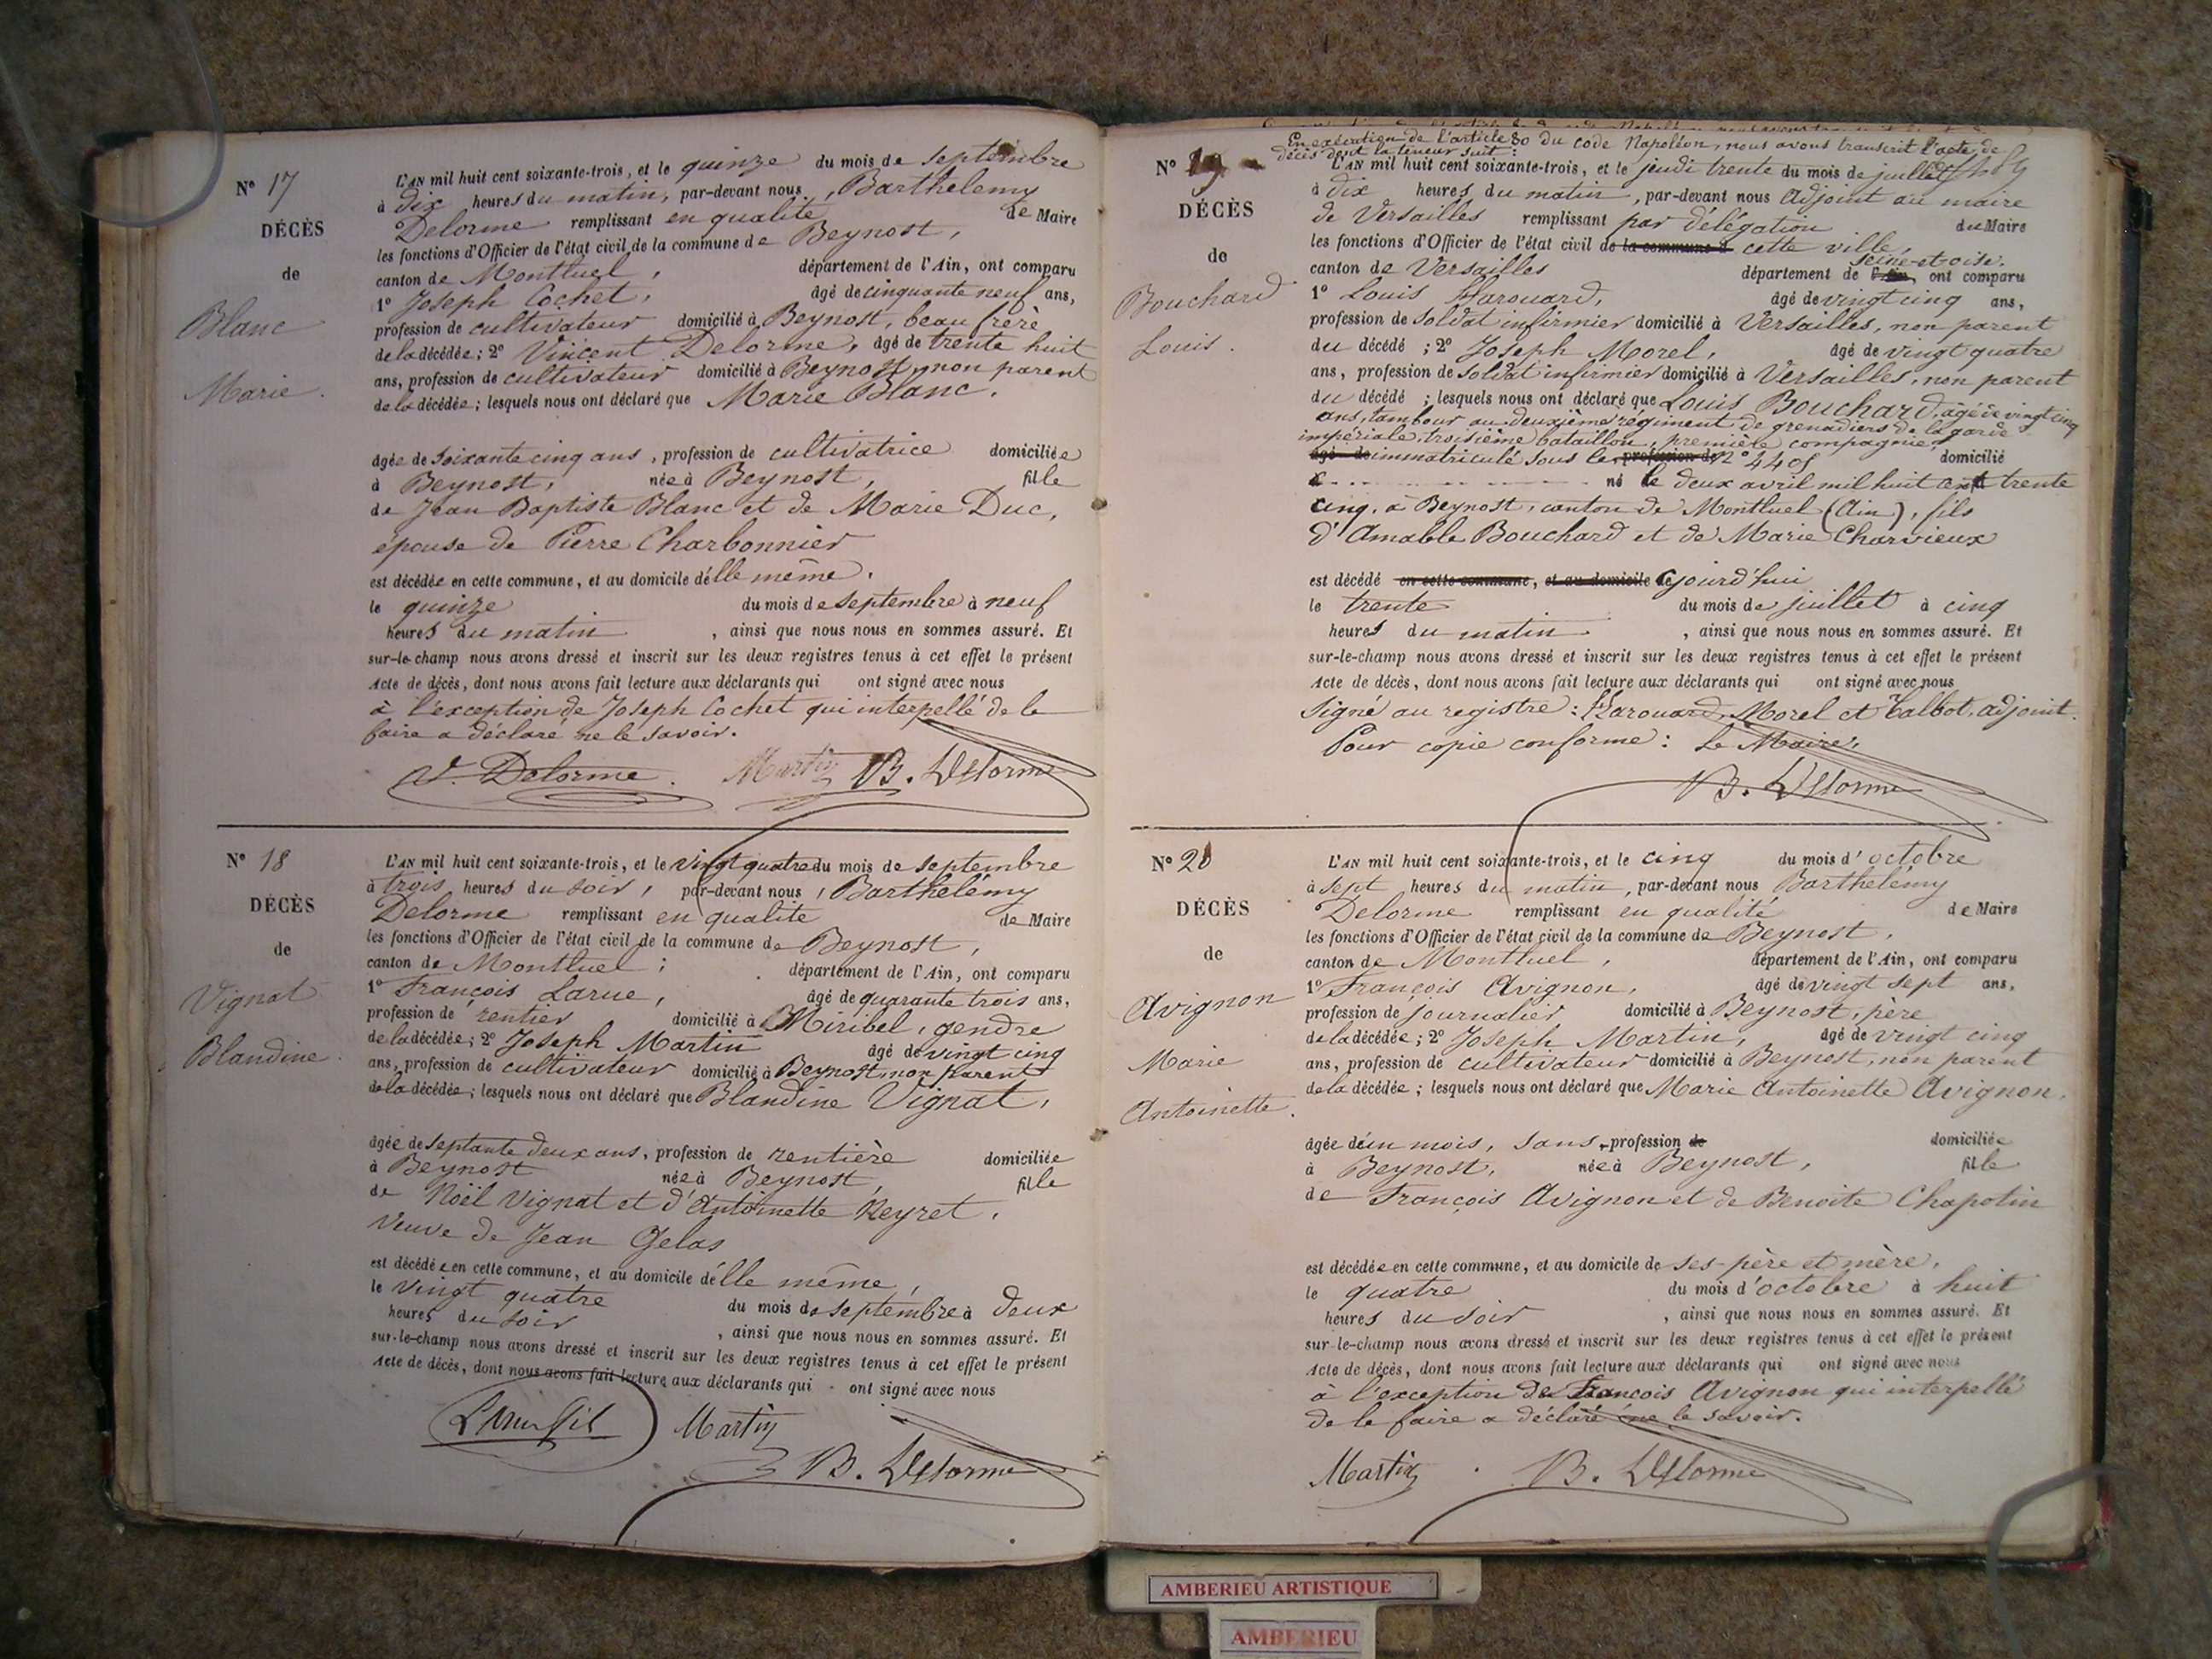 N° 17
DÉCÈS
de
Blanc
Marie.
L'AN mil huit cent soixante-trois, et le quinze du mois de septembre
à dix heures du matin, par-devant nous, Barthelemy
Delorme remplissant en qualité de Maire
les fonctions d'Officier de l'état civil de la commune de Beynost,
canton de Montluel, département de l'Ain, ont comparu
1° Joseph Cochet, âgé de cinquante neuf ans,
profession de cultivateur domicilié à Beynost, beau frère
de la décédée; 2° Vincent Delorme, âgé de trente huit
ans, profession de cultivateur domicilié à Beynost, non parent
de la décédée; lesquels nous ont déclaré que Marie Blanc,
âgée de soixante cinq ans, profession de cultivatrice domiciliée
à Beynost, née à Beynost, fille
de Jean Baptiste Blanc et de Marie Duc,
épouse de Pierre Charbonnier
est décédée en cette commune, et au domicile d'elle même,
le quinze du mois de septembre à neuf
heures du matin, ainsi que nous nous en sommes assuré. Et
sur-le-champ nous avons dressé et inscrit sur les deux registres tenus à cet effet le présent
Acte de décès, dont nous avons fait lecture aux déclarants qui ont signé avec nous
à l'exception de Joseph Cochet qui interpellé de le
faire a déclaré ne le savoir.
V. Delorme. Martin B. Delorme
N° 18
DÉCÈS
de
Vignat
Blandine.
L'AN mil huit cent soixante-trois, et le vingt quatre du mois de septembre
à trois heures du soir, par-devant nous, Barthélémy
Delorme remplissant en qualité de Maire
les fonctions d'Officier de l'état civil de la commune de Beynost,
canton de Montluel, département de l'Ain, ont comparu
1° François Larue, âgé de quarante trois ans,
profession de rentier domicilié à Miribel, gendre
de la décédée; 2° Joseph Martin âgé de vingt cinq
ans, profession de cultivateur domicilié à Beynost, non parent
de la décédée; lesquels nous ont déclaré que Blandine Vignat,
âgée de septante deux ans, profession de rentière domiciliée
à Beynost née à Beynost, fille
de Noël Vignat et d'Antoinette Reyret,
veuve de Jean Gelas
est décédée en cette commune, et au domicile d'elle même,
le vingt quatre du mois de septembre à deux
heures du soir, ainsi que nous nous en sommes assuré. Et
sur-le-champ nous avons dressé et inscrit sur les deux registres tenus à cet effet le présent
Acte de décès, dont nous avons fait lecture aux déclarants qui ont signé avec nous
Martin
B. Delorme
En exécution de l'article 80 du code Napoléon, nous avons transcrit l'acte de
décès dont la teneur suit:
N° 19
DÉCÈS
de
Bouchard
Louis.
L'AN mil huit cent soixante-trois, et le jeudi trente du mois de juillet
à dix heures du matin, par-devant nous Adjoint au maire
de Versailles remplissant par délégation du Maire
les fonctions d'Officier de l'état civil de la commune d cette ville,
canton de Versailles département de l'Ain Seine-et-oise, ont comparu
1° Louis Harouard, âgé de vingt cinq ans,
profession de Soldat infirmier domicilié à Versailles, non parent
du décédé; 2° Joseph Morel, âgé de vingt quatre
ans, profession de soldat infirmier domicilié à Versailles, non parent
du décédé; lesquels nous ont déclaré que Louis Bouchard, âgé de vingt cinq
ans, tambour au deuxième régiment de grenadiers de la garde
impériale, troisième bataillon, première compagnie,
âgé de immatriculé sous le profession de N° 4405 domicilié
à né le deux avril mil huit cent trente
cinq, à Beynost, canton de Montluel (Ain), fils
d'Amable Bouchard et de Marie Charvieux
est décédé en cette commune, et au domicile de cejourd'hui
le trente du mois de juillet à cinq
heures du matin, ainsi que nous nous en sommes assuré. Et
sur-le-champ nous avons dressé et inscrit sur les deux registres tenus à cet effet le présent
Acte de décès, dont nous avons fait lecture aux déclarants qui ont signé avec nous
Signé au registre: Harouard, Morel et Talbot, adjoint.
Pour copie conforme: Le Maire,
B. Delorme
N° 20
DÉCÈS
de
Avignon
Marie
Antoinette.
L'AN mil huit cent soixante-trois, et le cinq du mois d'octobre
à sept heures du matin, par-devant nous Barthélémy
Delorme remplissant en qualité de Maire
les fonctions d'Officier de l'état civil de la commune de Beynost,
canton de Montluel, département de l'Ain, ont comparu
1° François Avignon, âgé de vingt sept ans,
profession de journalier domicilié à Beynost, père
de la décédée; 2° Joseph Martin, âgé de vingt cinq
ans, profession de cultivateur domicilié à Beynost, non parent
de la décédée; lesquels nous ont déclaré que Marie Antoinette Avignon,
âgée d'un mois, sans profession de domiciliée
à Beynost, née à Beynost, fille
de François Avignon et de Benoite Chapolin
est décédée en cette commune, et au domicile de ses père et mère,
le quatre du mois d'octobre à huit
heures du soir, ainsi que nous nous en sommes assuré. Et
sur-le-champ nous avons dressé et inscrit sur les deux registres tenus à cet effet le présent
Acte de décès, dont nous avons fait lecture aux déclarants qui ont signé avec nous
à l'exception de François Avignon qui interpellé
de le faire a déclaré ne le savoir.
Martin B. Delorme
AMBERIEU ARTISTIQUE
AMBERIEU